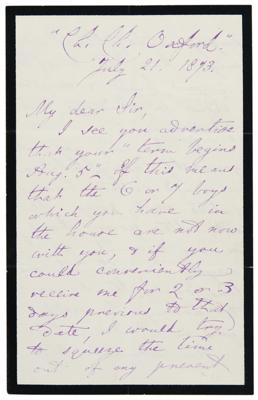 "Ch. Ch. Oxford."
"July 21. 1893.
My dear Sir,
I see you advertise
that your "term begins
Aug. 5". If this means
that the 6 or 7 boys
which you have in
the house are not now
with you, & if you
could conveniently
receive me for 2 or 3
days previous to that
date, I would try
to squeeze the time
out of my present